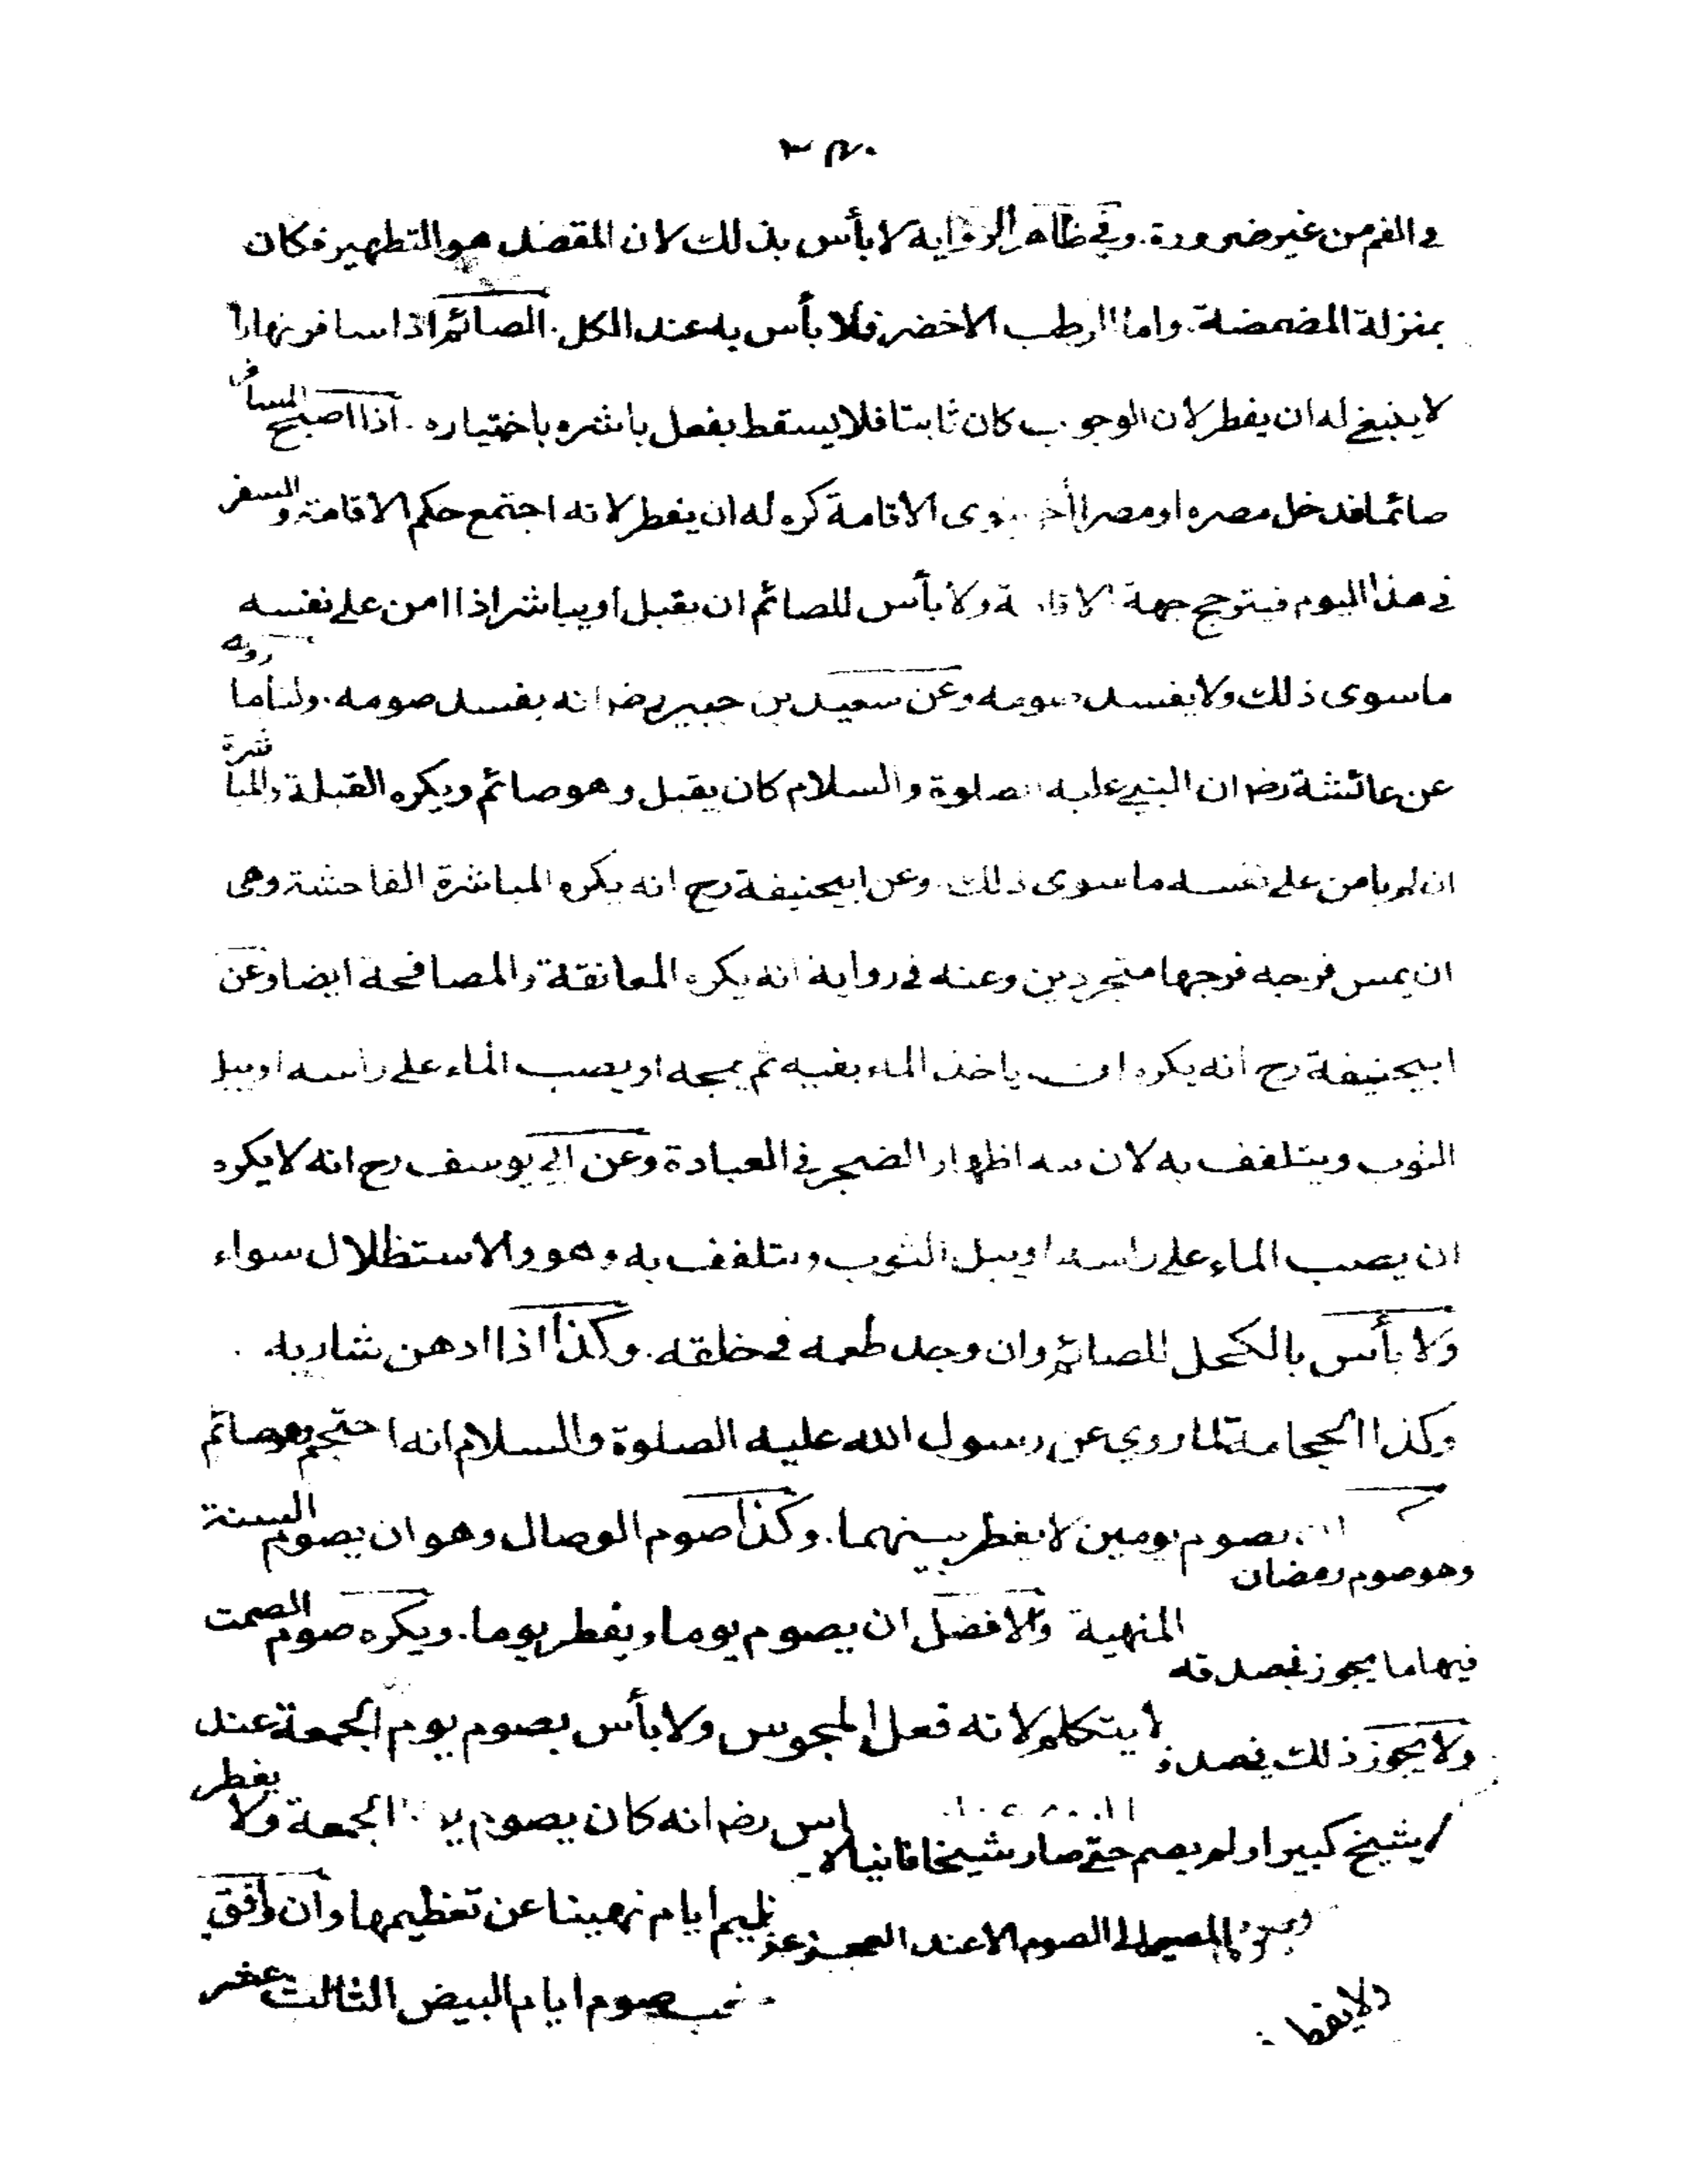 في الفم من غير ضرورة. وفي ظاهر الرواية لا بأس بذلك لان المقصد هو التطهير فكان
بمنزلة المضمضة. واما الرطب الاخضر فلا بأس به عند الكل. الصائم اذا سافر نهارا
لا ينبغي له ان يفطر لان الوجوب كان ثابتا فلا يسقط بفعل باشره باختياره. اذا اصبح المسافر
صائما فدخل مصره او مصرا نوى الاقامة كره له ان يفطر لانه اجتمع حكم الاقامة والسفر
في هذا اليوم فيترجح جهة الاقامة ولا بأس للصائم ان يقبل او يباشر اذا امن على نفسه
ما سوى ذلك ولا يفسد صومه وعن سعيد بن جبير رضـ انه يفسد صومه. ولنا ما روته
عن عائشة رضـ ان النبي عليه الصلوة والسلام كان يقبل وهو صائم ويكره القبلة والمباشرة
ان لم يامن على نفسه ما سوى ذلك. وعن ابيحنيفة رح انه يكره المباشرة الفاحشة وهى
ان يمس فرجه فرجها متجردين وعنه في رواية انه يكره المعانقة والمصافحة ايضا وعن
ابيحنيفة رح انه يكره ان ياخذ الماء بفيه ثم يمجه او يصب الماء على راسه او يبل
الثوب ويتلفف به لان اظهار الضجر في العبادة وعن ابي يوسف رح انه لا يكره
ان يصب الماء على راسه او يبل الثوب ويتلفف به وهو والاستظلال سواء
ولا بأس بالكحل للصائم وان وجد طعمه في حلقه. وكذا اذا ادهن شاربه.
وكذا الحجامة لما روي عن رسول الله عليه الصلوة والسلام انه احتجم وهو صائم
ان يصوم يومين لا يفطر بينهما. وكذا صوم الوصال وهو ان يصوم السنة
وهو صوم رمضان
المنهية والافضل ان يصوم يوما ويفطر يوما. ويكره صوم الصمت
فيها ما يجوز بصدقه
لا يتكلم لانه فعل المجوس ولا بأس بصوم يوم الجمعة عند
ولا يجوز ذلك
رضـ انه كان يصوم الجمعة ولا يفطر
شيخ كبير او لم يصم حتى صار شيخا فانيا
ايام نهينا عن تعظيمها وان وافق
المصير الى الصوم الا عند العجز
صوم ايام البيض الثالث عشر